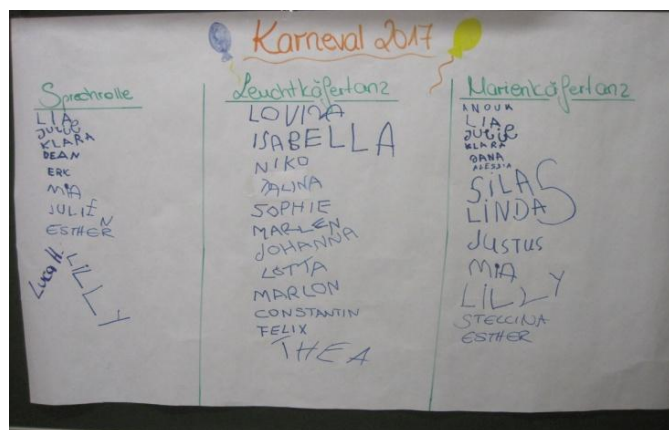 Karneval 2017
Sprechrolle
LIA
JULIE
KLARA
DEAN
ERK
MIA
JULIEN
ESTHER
Luca H.
LILLY
Leuchtkäfertanz
LOVISA
ISABELLA
NIKO
SOPHIE
MARLEN
JOHANNA
LOTTA
MARLON
CONSTANTIN
FELIX
THEA
Marienkäfertanz
ANOUK
LIA
JULIE
KLARA
DANA
ALESSIA
SILAS
LINDA
JUSTUS
MIA
LILLY
STELLINA
ESTHER